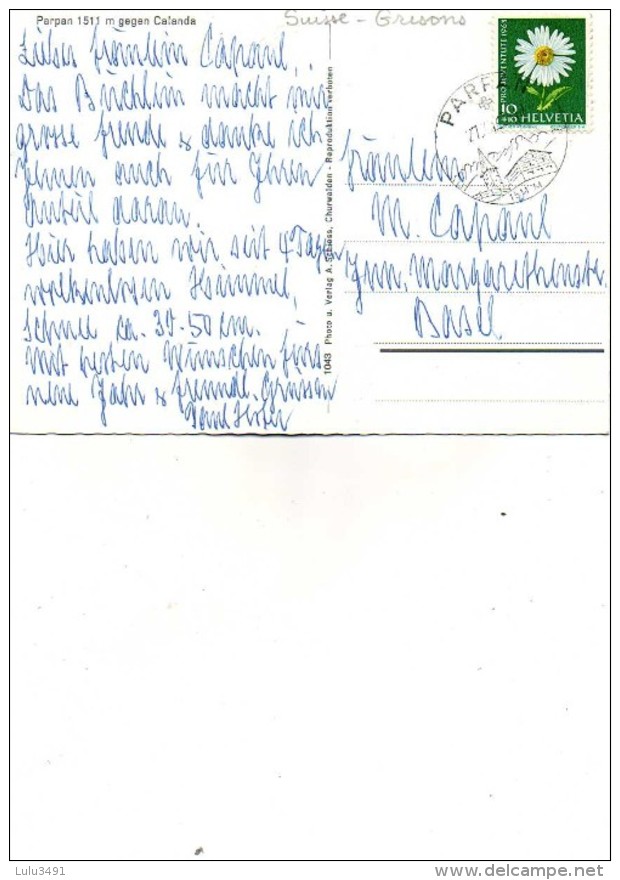 Parpan 1511 m gegen Calanda
Suisse - Grisons
PRO JUVENTUTE 1963
10
+10 HELVETIA
PARPAN
1511 M
Liebes Fräulein Capaul,
Das Büchlein macht mir
grosse Freude & danke ich
Ihnen auch für Ihren
Anteil daran.
Hier haben wir seit 4 Tagen
wolkenlosen Himmel,
Schnee ca. 30-50 cm.
Mit besten Wünschen fürs
neue Jahr & freundl. Grüssen
1043 Photo u. Verlag A. Schloss, Churwalden - Reproduktion verboten
Fräulein
M. Capaul
Inn. Margarethenstr.
Basel
Lulu3491
www.delcampe.net